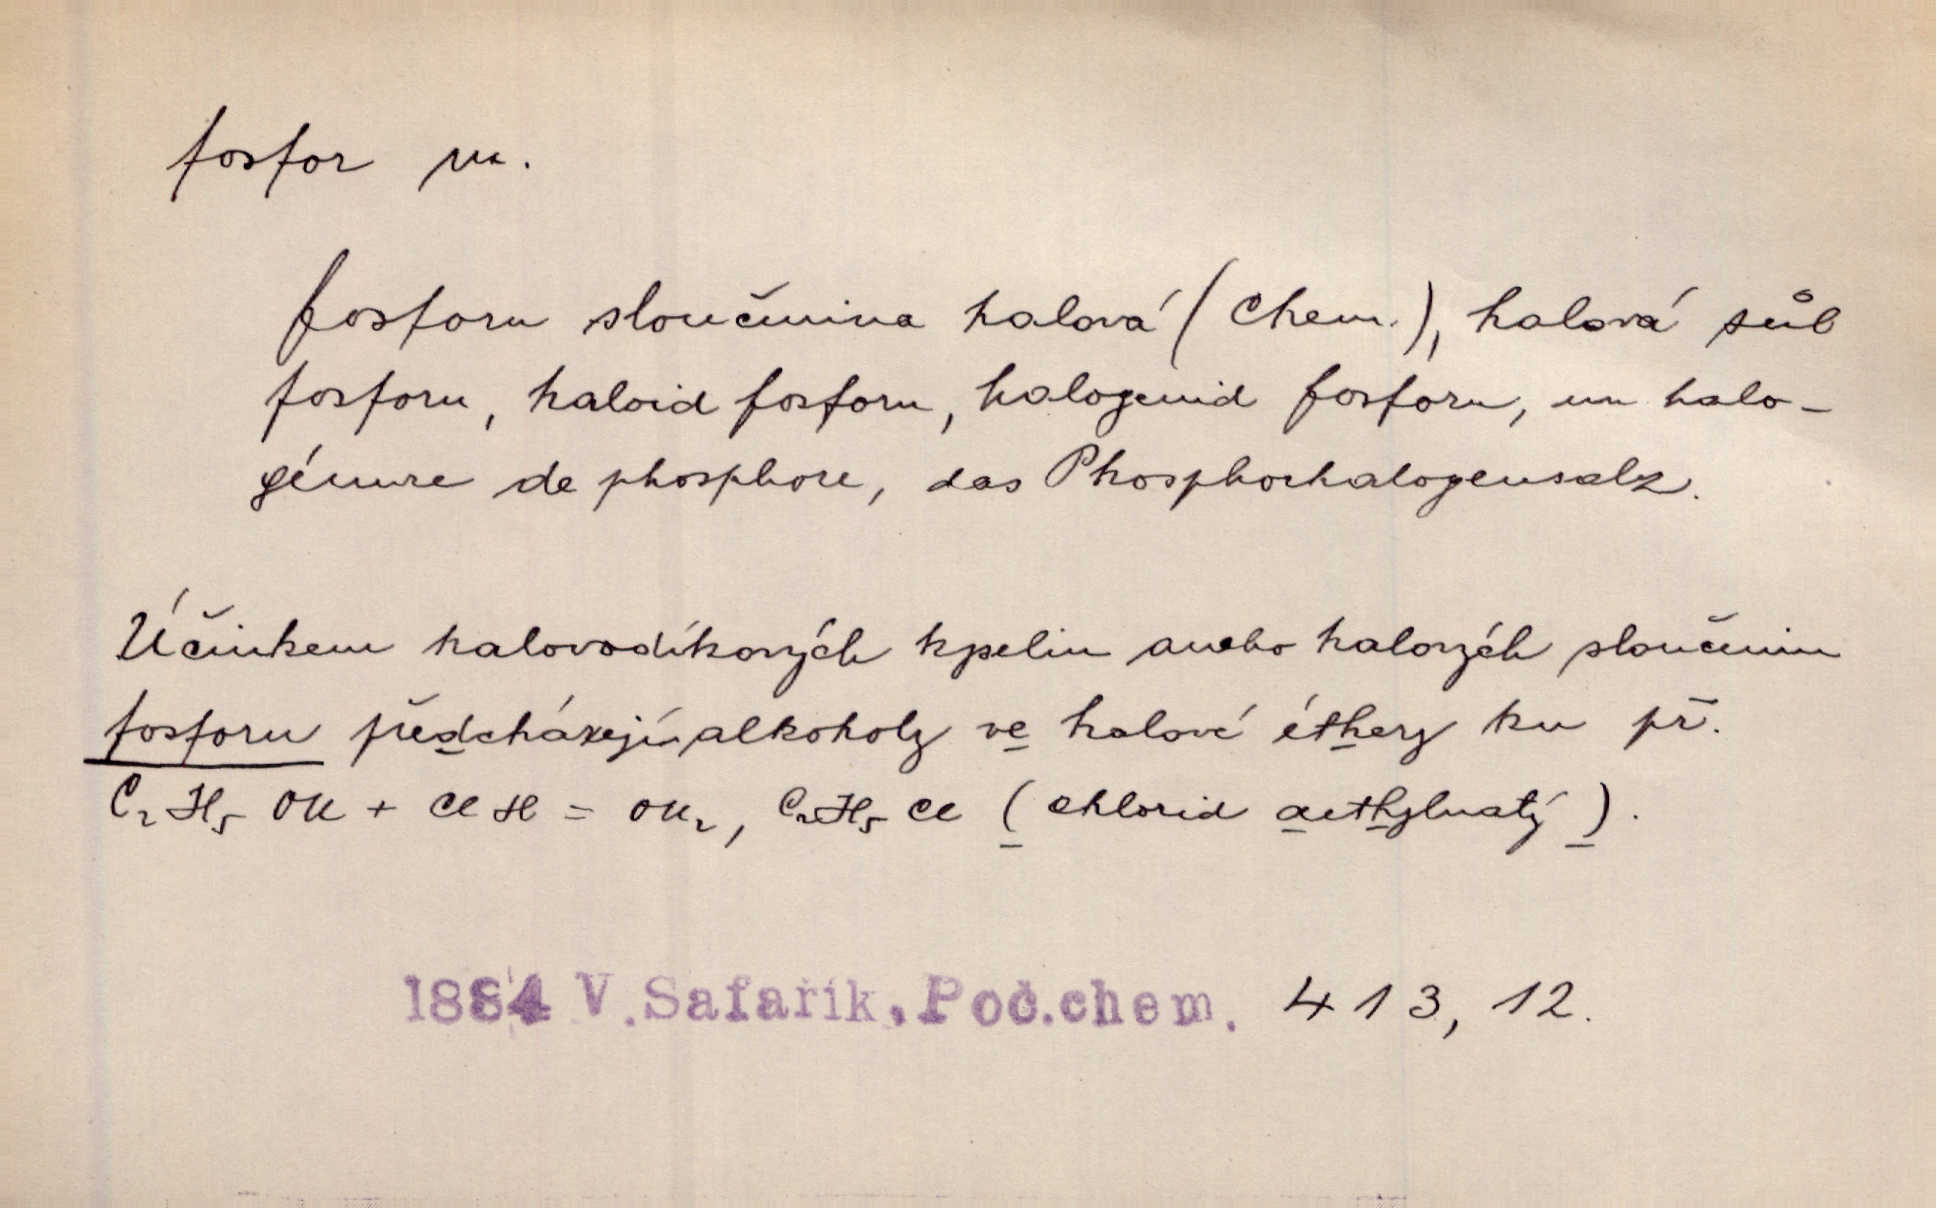 fosfor m.
fosforu sloučenina halová (Chem.), halová sůl
fosforu, haloid fosforu, halogenid fosforu, un halo-
génure de phosphore, das Phosphorhalogensalz.
Účinkem halovodíkových kyselin anebo halových sloučenin
fosforu předcházejí alkoholy ve halové éthery ku př.
C₂H₅OH + ClH = OH₂, C₂H₅Cl (chlorid aethylnatý).
1884 V.Safařík.Poč.chem. 413, 12.